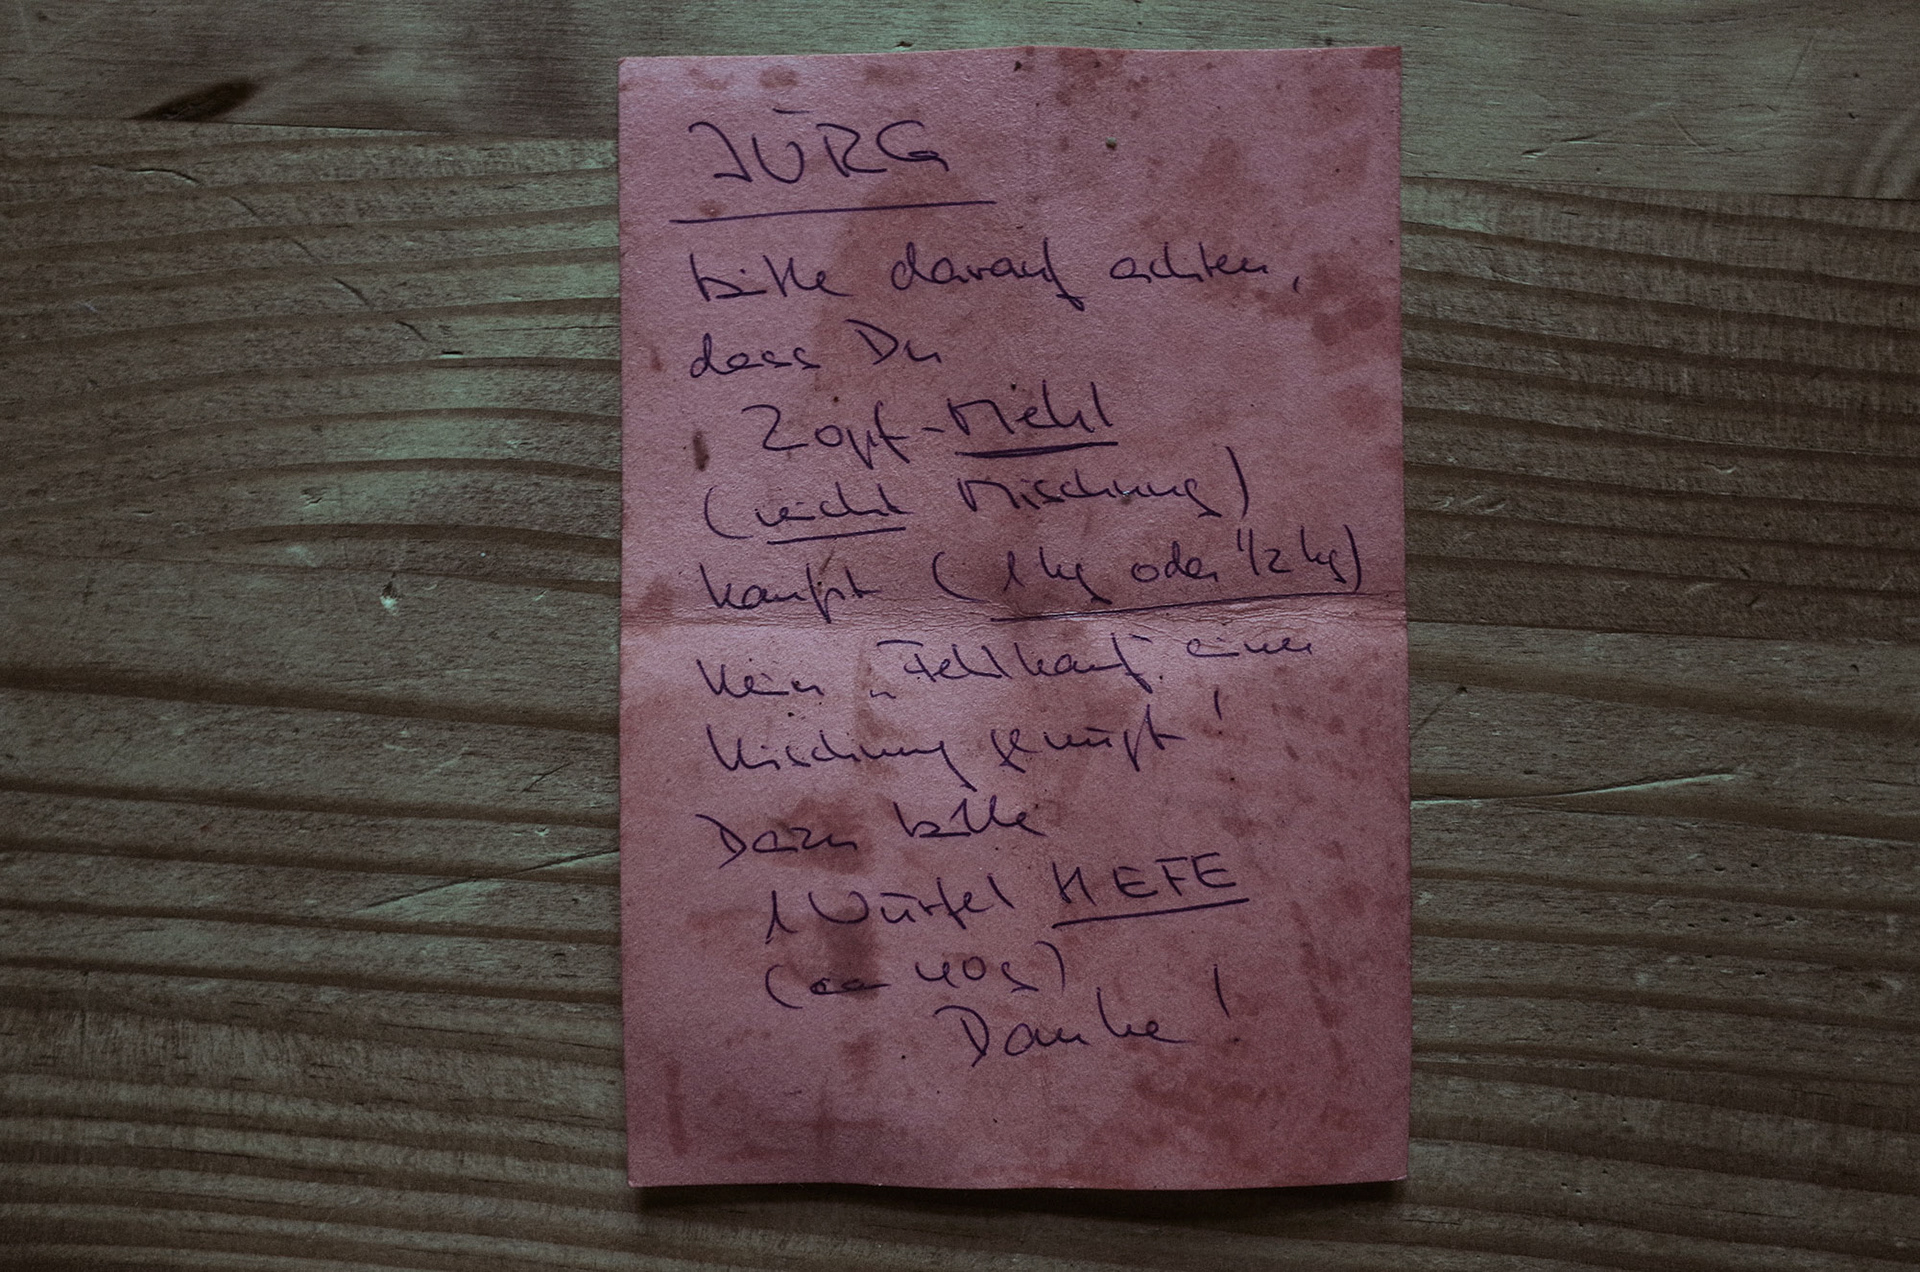 JÜRG
bitte darauf achten,
dass Du
Zopf-Mehl
(nicht Mischung)
kaufst (1 kg oder 1/2 kg)
Kein „Fehlkauf" einer
Mischung genügt!
Dazu bitte
1 Würfel HEFE
(ca 40g)
Danke!